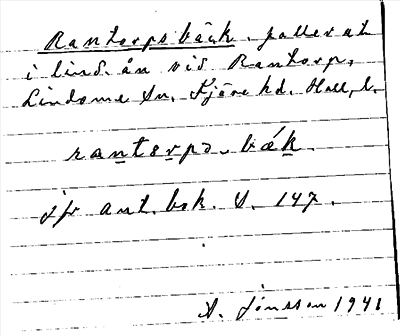 Rantorps bäck, faller ut
i lind. ån vid Rantorp,
Lindome sn. Fjäre hd. Hall. l.
rantərpə- bæk.
jfr ant. bok. S. 147.
A. Jönsson 1941